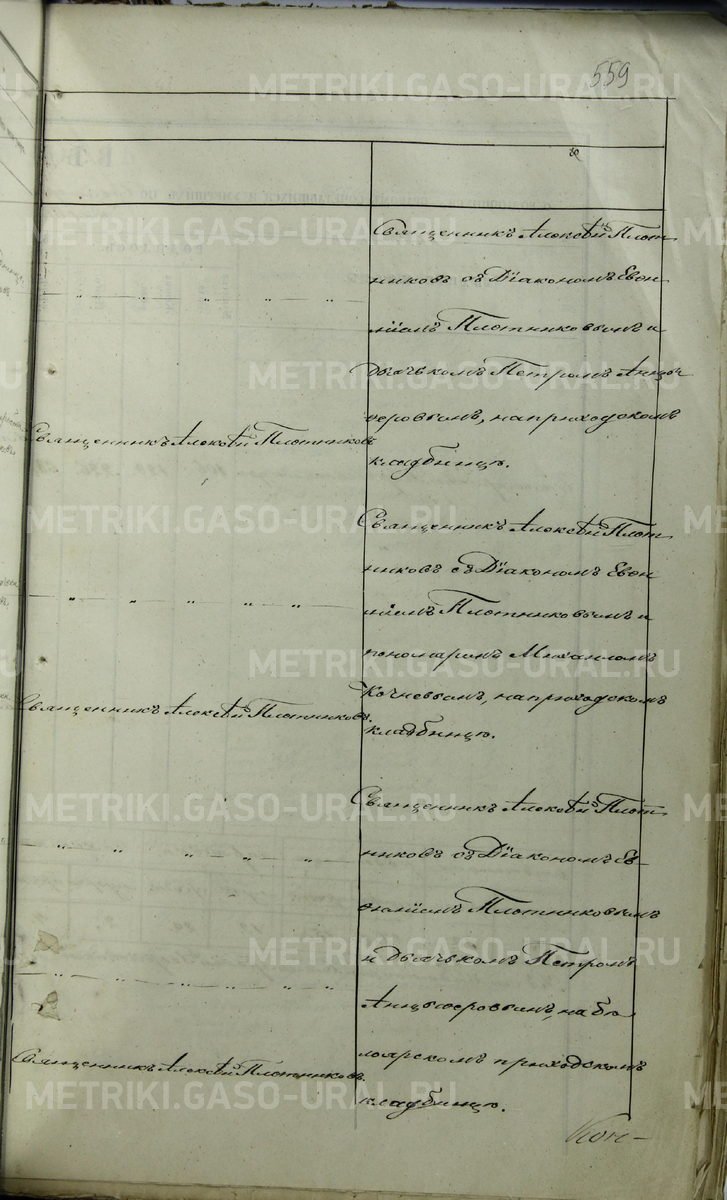 559
Священникъ Алексѣй Плот
никовъ съ Діакономъ Евѳи
міемъ Плотниковымъ и
Дьячькомъ Петромъ Анцы
феровымъ, на приходскомъ
кладбищѣ.
Священникъ Алексѣй Плотниковъ
Священникъ Алексѣй Плот
никовъ съ Діакономъ Евѳи
міемъ Плотниковымъ и
пономаремъ Михаиломъ
Кочневымъ, на приходскомъ
кладбищѣ.
Священникъ Алексѣй Плотниковъ.
Священникъ Алексѣй Плот
никовъ съ Діакономъ Ев
ѳиміемъ Плотниковымъ
и Дьячькомъ Петромъ
Анцыферовымъ, на бе
лоярскомъ приходскомъ
кладбищѣ.
Священникъ Алексѣй Плотниковъ.
METRIKI.GASO-URAL.RU